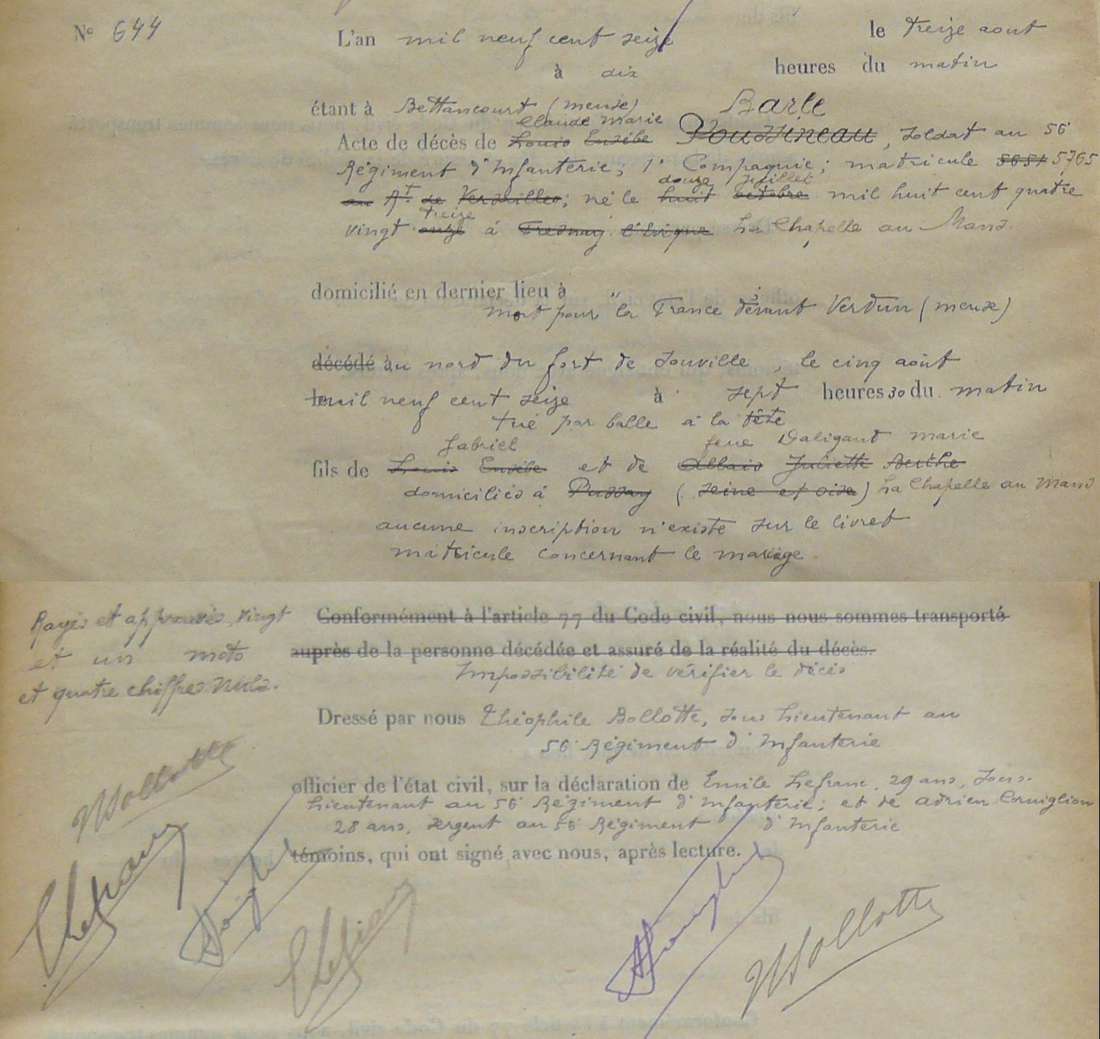 N° 644
L'an mil neuf cent seize le treize aout
à dix heures du matin
étant à Bettancourt (meuse) Barle
Claude Marie
Acte de décès de Louis Eusèbe Poussineau, soldat au 56
Régiment d'Infanterie, 1e Compagnie; matricule 5765
douze juillet
au Rt de Versailles; né le huit octobre mil huit cent quatre
treize
vingt onze à Fresnay l'Evêque La Chapelle au Mans.
domicilié en dernier lieu à
mort pour la France devant Verdun (meuse)
décédé au nord du fort de Souville, le cinq août
mil neuf cent seize à sept heures 30 du matin
tué par balle à la tête
Gabriel feue Daligant marie
fils de Louis Eusèbe et de Allais Juliette Berthe
domiciliés à Pussay (Seine et oise) La Chapelle au Mans
aucune inscription n'existe sur le livret
matricule concernant le mariage.
Rayés et approuvés, vingt
et un mots
et quatre chiffres nuls.
Conformément à l'article 77 du Code civil, nous nous sommes transporté
auprès de la personne décédée et assuré de la réalité du décès.
Impossibilité de vérifier le décès
Dressé par nous Théophile Bollotte, sous Lieutenant au
56e Régiment d'Infanterie
officier de l'état civil, sur la déclaration de Emile Lefranc, 29 ans, Sous-
Lieutenant au 56e Régiment d'Infanterie; et de Adrien Corniglion
28 ans, sergent au 56 Régiment d'Infanterie
témoins, qui ont signé avec nous, après lecture.